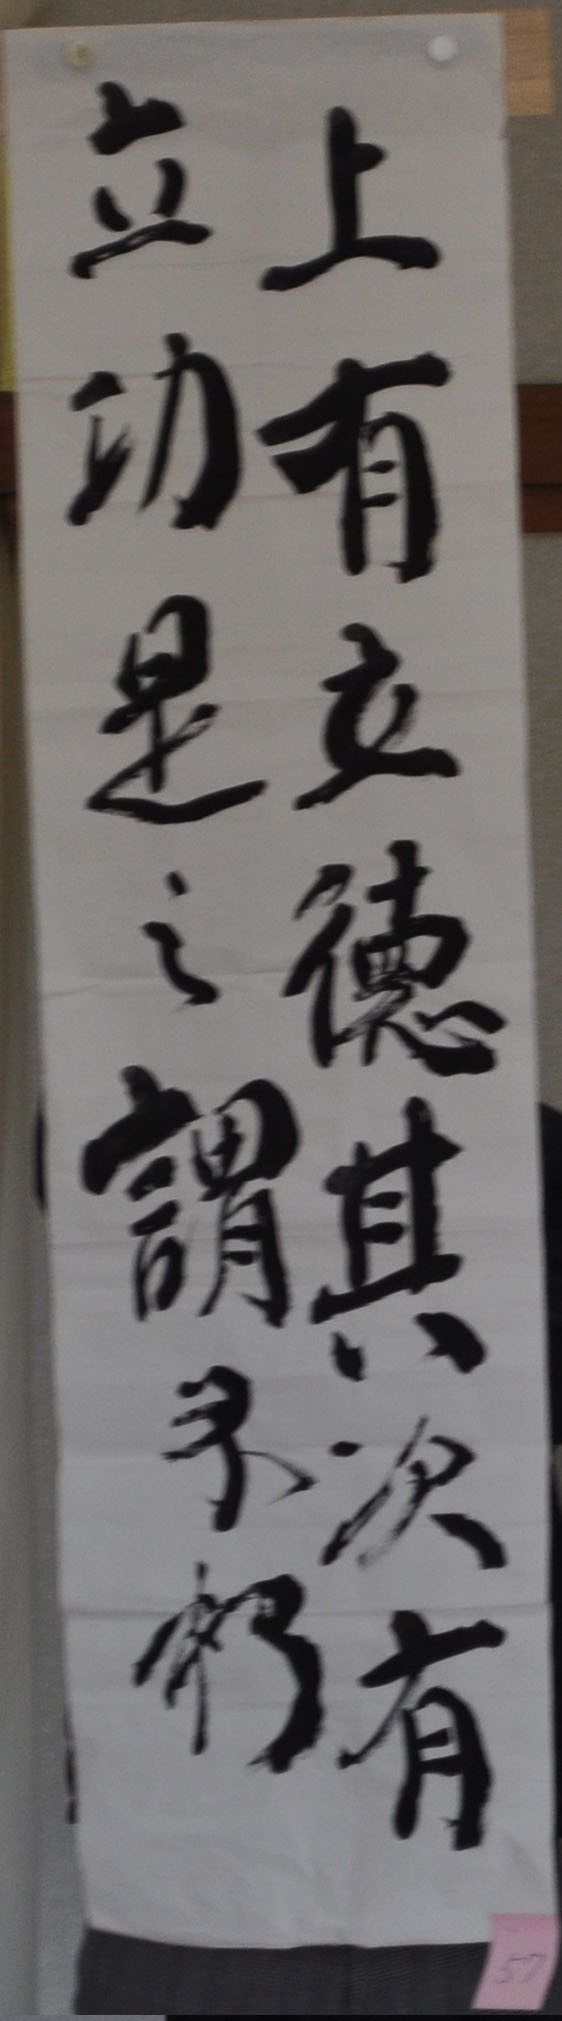 上有立德其次有
立功是之謂不朽
57